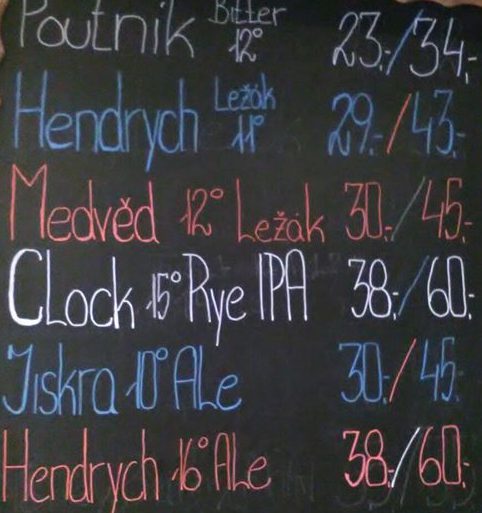 Poutník Bitter 12° 23,-/34,-
Hendrych Ležák 11° 29,-/43,-
Medvěd 12° Ležák 30,-/45,-
CLock 15° Rye IPA 38,-/60,-
Jiskra 10° ALe 30,-/45,-
Hendrych 16° ALe 38,-/60,-